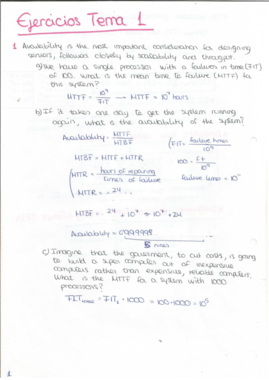 Ejercicios Tema 1
1 Availability is the most important consideration for designing
servers, followed closely by scalability and throughput.
a) We have a single processor with a failures in time (FIT)
of 100. What is the mean time to failure (MTTF) for
this system?
MTTF = 10⁹/FIT → MTTF = 10⁷ hours
b) If it takes one day to get the system running
again, what is the availability of the system?
Availability = MTTF/MTBF
(FIT = failure times/10⁹
MTBF = MTTF + MTTR
100 = FT/10⁹
MTTR = hours of repairing/times of failure
failure times = 10
MTTR = 24
MTBF = 24 + 10⁷ = 10⁷ + 24
Availability = 0'999998
5 nines
c) Imagine that the government, to cut costs, is going
to build a super computer out of inexpensive
computers rather than expensive, reliable computers.
What is the MTTF for a system with 1000
processors?
FIT = FIT₁ · 1000 = 100·1000 = 10⁵